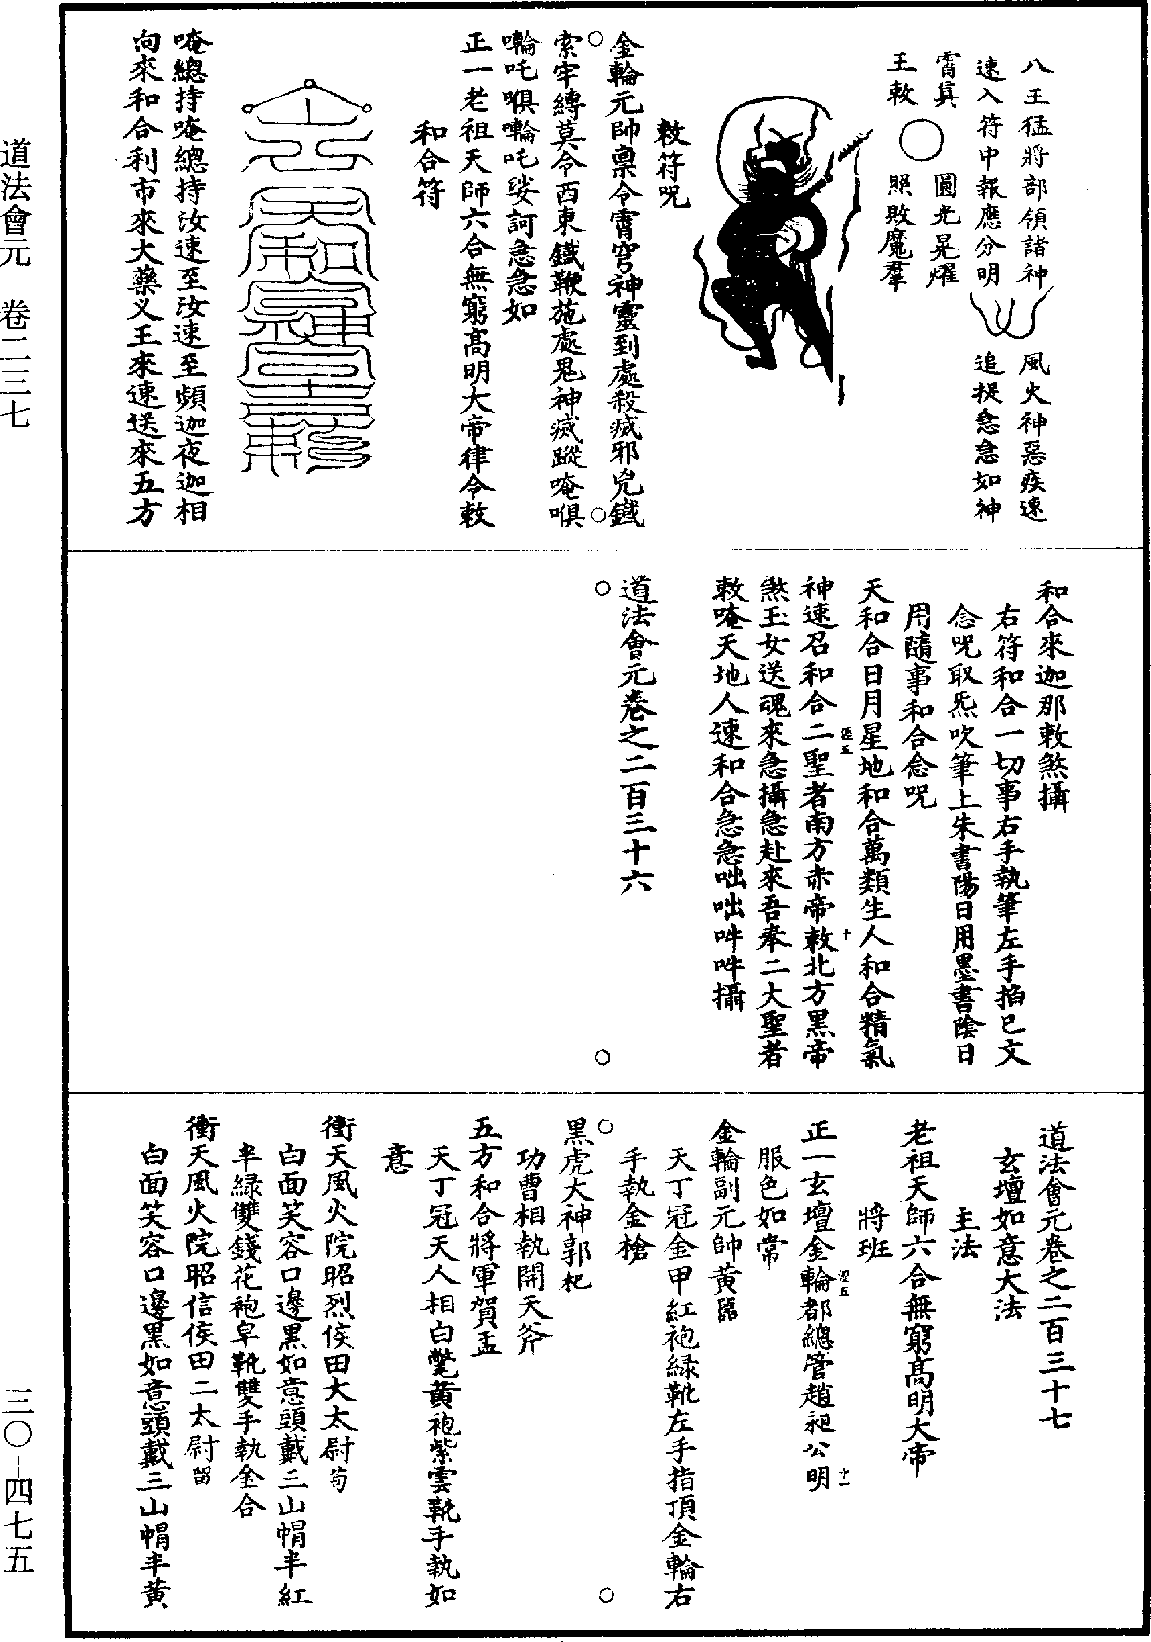 八王猛將部領諸神
速入符中報應分明
風火神惡疾速
追捉急急如神
霄真
王敕
圓光晃耀
照敗魔羣
敕符咒
金輪元帥禀令霄穹神靈到處殺滅邪兇鐵
索牢縛莫令西東鐵鞭施處鬼神滅蹤唵嗔
㘄吒嗔㘄吒娑訶急急如
正一老祖天師六合無窮高明大帝律令敕
和合符
唵總持唵總持汝速至汝速至頻迦夜迦相
向來和合利市來大藥义王來速送來五方
和合來迦那敕煞攝
右符和合一切事右手執筆左手掐巳文
念咒取炁吹筆上朱書陽日用墨書陰日
用隨事和合念咒
天和合日月星地和合萬類生人和合精氣
神速召和合二聖者南方赤帝敕北方黑帝
煞玉女送魂來急攝急赴來吾奉二大聖者
敕唵天地人速和合急急咄咄吽吽攝
道法會元卷之二百三十六
道法會元卷之二百三十七
玄壇如意大法
主法
老祖天師六合無窮高明大帝
將班
正一玄壇金輪都總管趙昶公明
十一
服色如常
金輪副元帥黃
天丁冠金甲紅袍綠靴左手指頂金輪右
手執金槍
黑虎大神郭杞
功曹相執開天斧
五方和合將軍賀孟
天丁冠天人相白鼈黃袍紫雲靴手執如
意
衝天風火院昭烈侯田大太尉苟
白面笑容口邊黑如意頭戴三山帽半紅
半綠雙錢花袍皁靴雙手執金合
衝天風火院昭信侯田二太尉留
白面笑容口邊黑如意頭戴三山帽半黃
道法會元 卷二三七
三〇-四七五